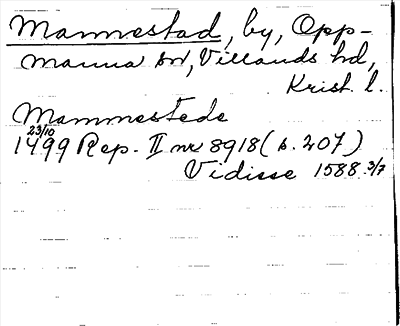 Mannestad, by, Opp-
manna sn, Villands hd,
Krist. l.
Mammestede
23/10
1499 Rep. II nr 8918 (s. 207)
Vidisse 1588 3/7